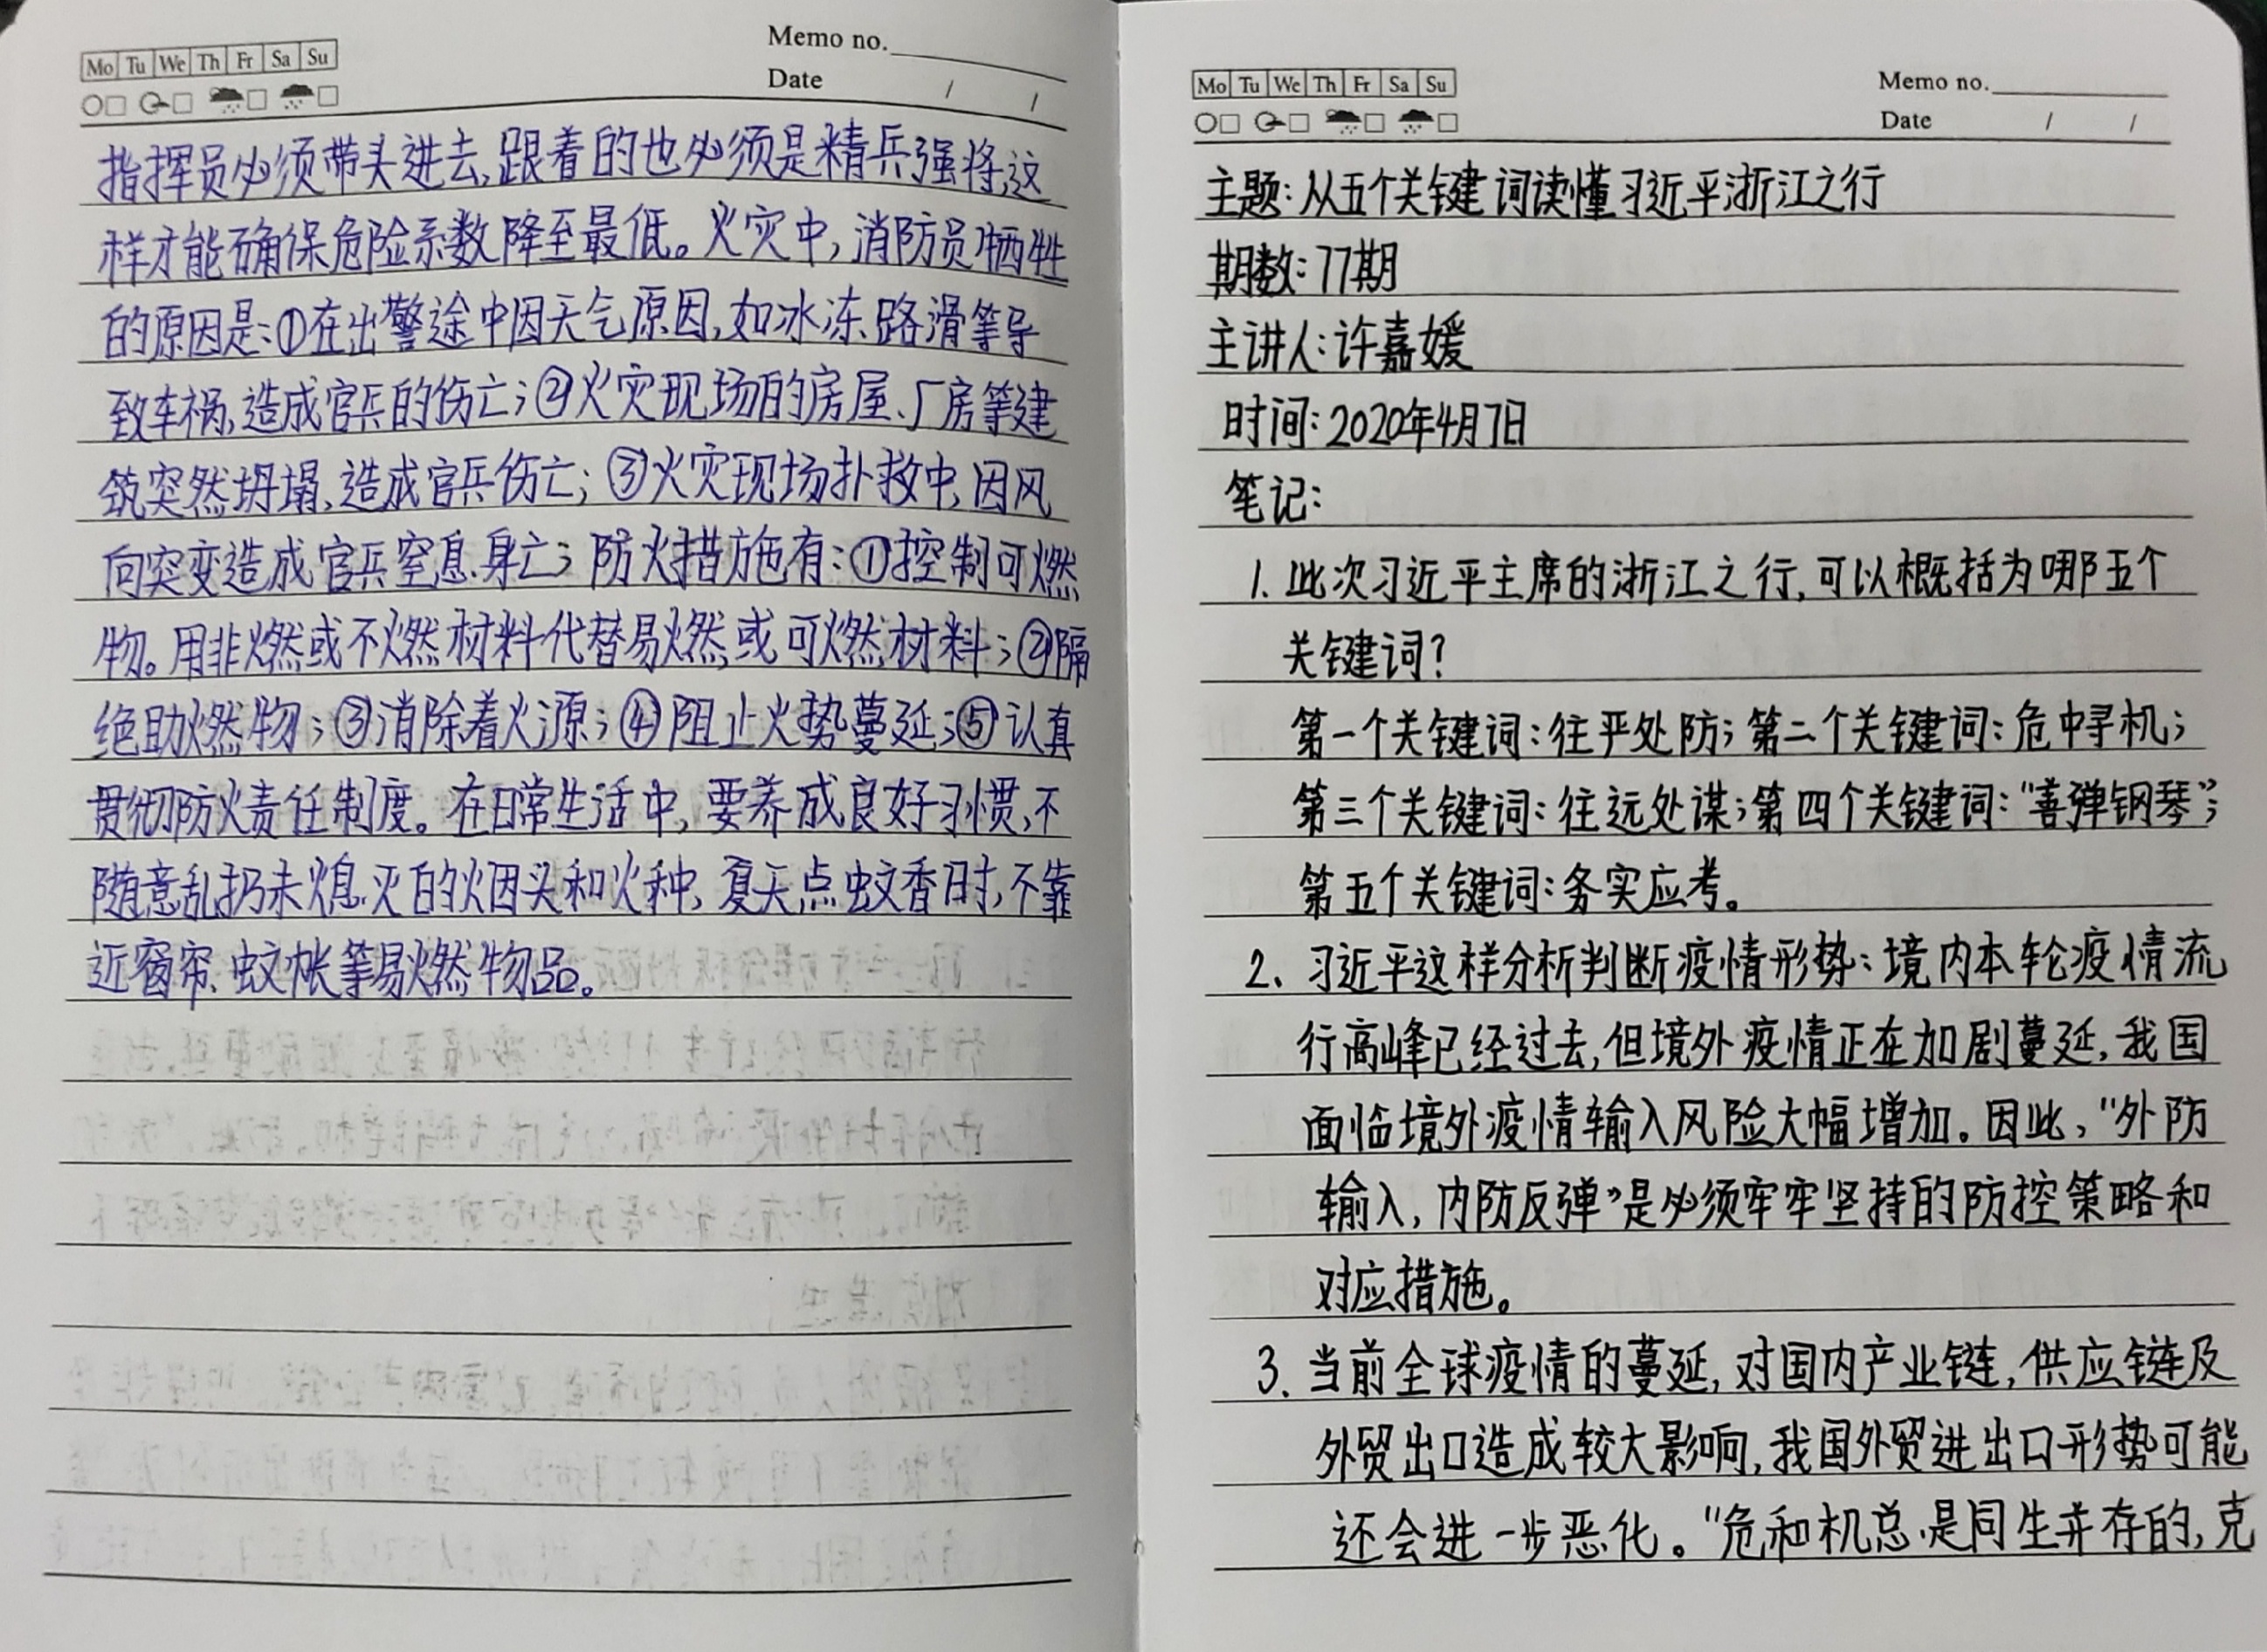 Mo Tu We Th Fr Sa Su
Memo no.
Date / /
指挥员必须带头进去,跟着的也必须是精兵强将,这
样才能确保危险系数降至最低。火灾中,消防员牺牲
的原因是:①在出警途中因天气原因,如冰冻、路滑等导
致车祸,造成官兵的伤亡;②火灾现场的房屋、厂房等建
筑突然坍塌,造成官兵伤亡;③火灾现场扑救中,因风
向突变造成官兵窒息身亡;防火措施有:①控制可燃
物。用非燃或不燃材料代替易燃或可燃材料;②隔
绝助燃物;③消除着火源;④阻止火势蔓延;⑤认真
贯彻防火责任制度。在日常生活中,要养成良好习惯,不
随意乱扔未熄灭的烟头和火种,夏天点蚊香时,不靠
近窗帘、蚊帐等易燃物品。
Mo Tu We Th Fr Sa Su
Memo no.
Date / /
主题:从五个关键词读懂习近平浙江之行
期数:77期
主讲人:许嘉媛
时间:2020年4月7日
笔记:
1. 此次习近平主席的浙江之行,可以概括为哪五个
关键词?
第一个关键词:往严处防;第二个关键词:危中寻机;
第三个关键词:往远处谋;第四个关键词:“善弹钢琴”;
第五个关键词:务实应考。
2、习近平这样分析判断疫情形势:境内本轮疫情流
行高峰已经过去,但境外疫情正在加剧蔓延,我国
面临境外疫情输入风险大幅增加。因此,“外防
输入,内防反弹”是必须牢牢坚持的防控策略和
对应措施。
3、当前全球疫情的蔓延,对国内产业链,供应链及
外贸出口造成较大影响,我国外贸进出口形势可能
还会进一步恶化。“危和机总是同生并存的,克